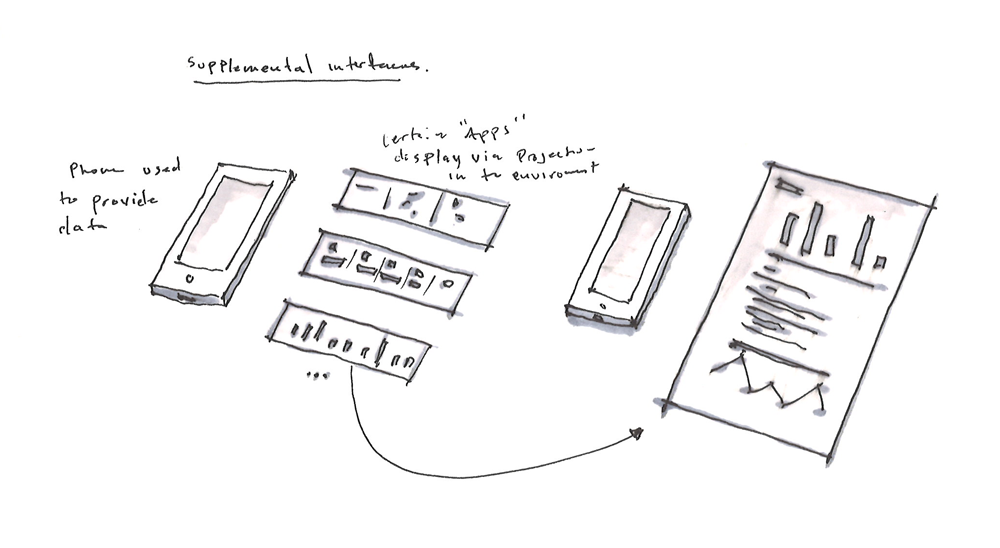 Supplemental interfaces.
Phone used
to provide
data
Certain "Apps"
display via Projection
in to enviroment
...